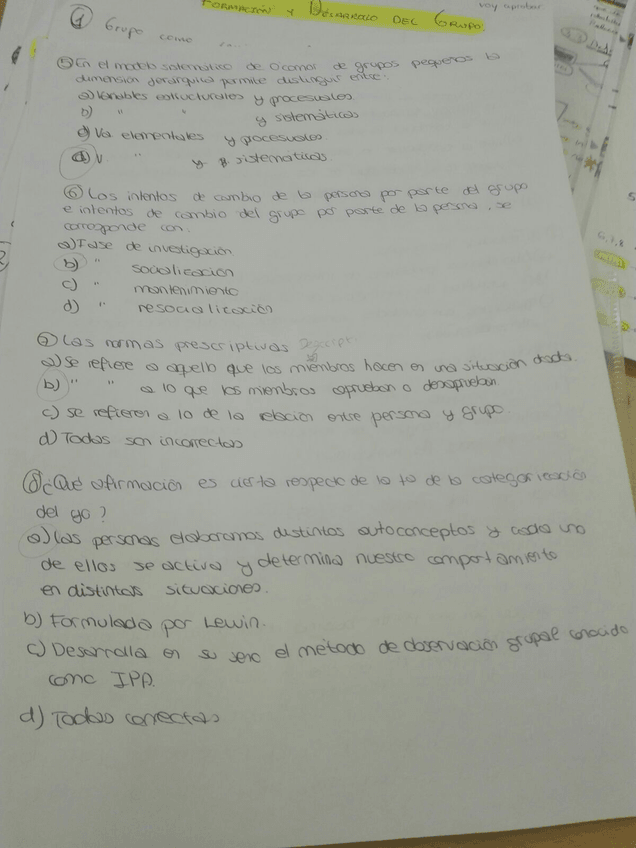 FORMACIÓN Y DESARROLLO DEL GRUPO
voy aprobar
① Grupo como
⑤ En el modelo sistemático de de grupos pequeños la
dimensión jerárquica permite distinguir entre:
a) Variables estructurales y procesuales
b) " " y sistemáticos
c) Va elementales y procesuales
d) V. " y sistematicas
⑥ Los intentos de cambio de la persona por parte del grupo
e intentos de cambio del grupo por parte de la persona, se
corresponde con.
a) Fase de investigación
b) " socialización
c) " mantenimiento
d) " resocialización
⑦ Las normas prescriptivas
a) Se refiere a aquello que los miembros hacen en una situación dada.
b) " " a lo que los miembros aprueban o desaprueban.
c) se refieren a lo de la relación entre persona y grupo.
d) Todas son incorrectas
⑧ ¿Qué afirmación es cierta respecto de la ta de la categorización
del yo?
a) Las personas elaboramos distintos autoconceptos y cada uno
de ellos se activa y determina nuestro comportamiento
en distintas situaciones.
b) Formulada por Lewin.
c) Desarrolla en su seno el método de observación grupal conocido
como IPA.
d) Todas correctas